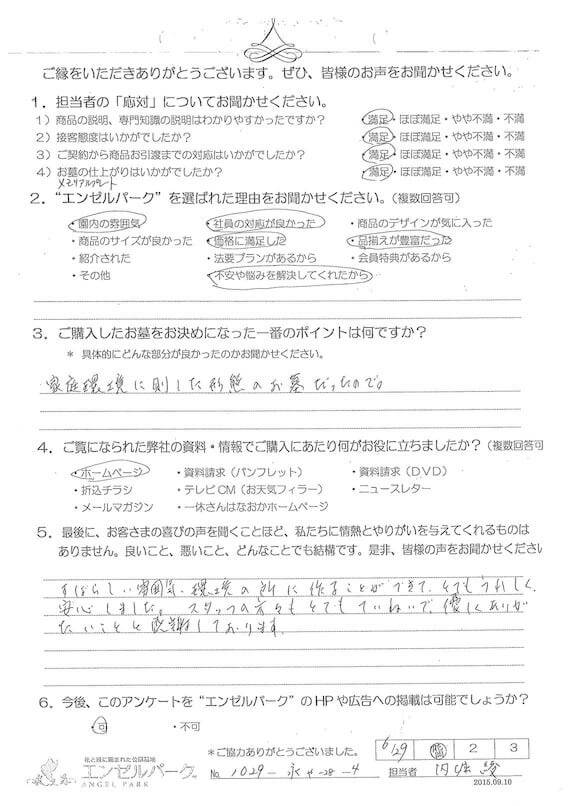 ご縁をいただきありがとうございます。ぜひ、皆様のお声をお聞かせください。
1．担当者の「応対」についてお聞かせください。
1）商品の説明、専門知識の説明はわかりやすかったですか？ 満足・ほぼ満足・やや不満・不満
2）接客態度はいかがでしたか？ 満足・ほぼ満足・やや不満・不満
3）ご契約から商品お引渡までの対応はいかがでしたか？ 満足・ほぼ満足・やや不満・不満
4）お墓の仕上がりはいかがでしたか？ 満足・ほぼ満足・やや不満・不満
メモリアルプレート
2．“エンゼルパーク”を選ばれた理由をお聞かせください。（複数回答可）
・園内の雰囲気 ・社員の対応が良かった ・商品のデザインが気に入った
・商品のサイズが良かった ・価格に満足した ・品揃えが豊富だった
・紹介された ・法要プランがあるから ・会員特典があるから
・その他 ・不安や悩みを解決してくれたから
3．ご購入したお墓をお決めになった一番のポイントは何ですか？
＊ 具体的にどんな部分が良かったのかお聞かせください。
家庭環境に則した形態のお墓だったので。
4．ご覧になられた弊社の資料・情報でご購入にあたり何がお役に立ちましたか？（複数回答可
・ホームページ ・資料請求（パンフレット） ・資料請求（DVD）
・折込チラシ ・テレビCM（お天気フィラー） ・ニュースレター
・メールマガジン ・一休さんはなおかホームページ
5．最後に、お客さまの喜びの声を聞くことほど、私たちに情熱とやりがいを与えてくれるものは
ありません。良いこと、悪いこと、どんなことでも結構です。是非、皆様の声をお聞かせくださ
すばらしい雰囲気、環境の所に作ることができて、とてもうれしく、
安心しました。スタッフの方々もとてもていねいで、優しくありが
たいことと感謝しております。
6．今後、このアンケートを“エンゼルパーク”のHPや広告への掲載は可能でしょうか？
・可 ・不可
＊ご協力ありがとうございました。
6/29 2 3
花と緑に囲まれた公園墓地
エンゼルパーク
ANGEL PARK
No. 1029-永4-28-4
担当者 内堀
2015.09.10